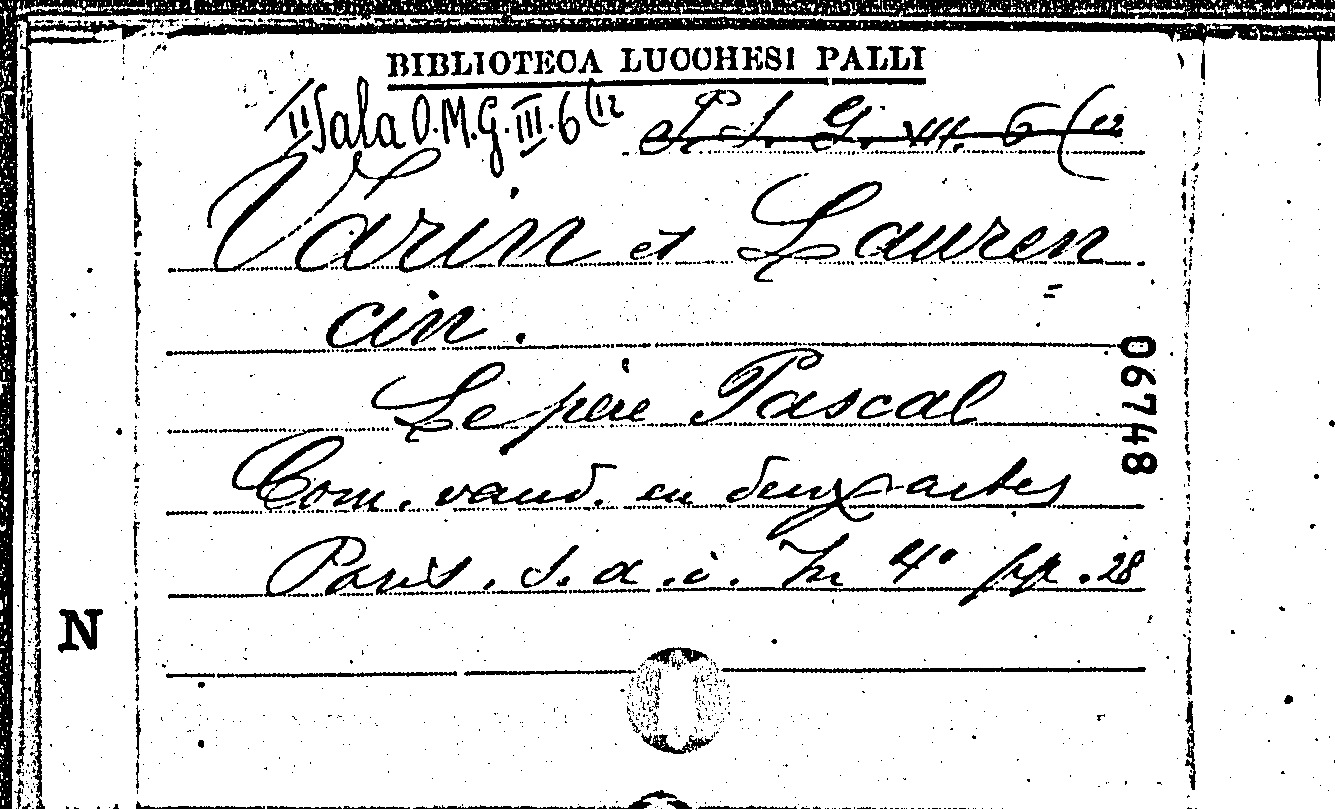 BIBLIOTECA LUCCHESI PALLI
II Sala O.M.G. III. 6 (12
P. S. G. VII. 6 (12
Varin et Lauren
=
cin.
Le père Pascal
Com. vaud. en deux actes
Paris. s. a. i. In 4° pp. 28
06748
N